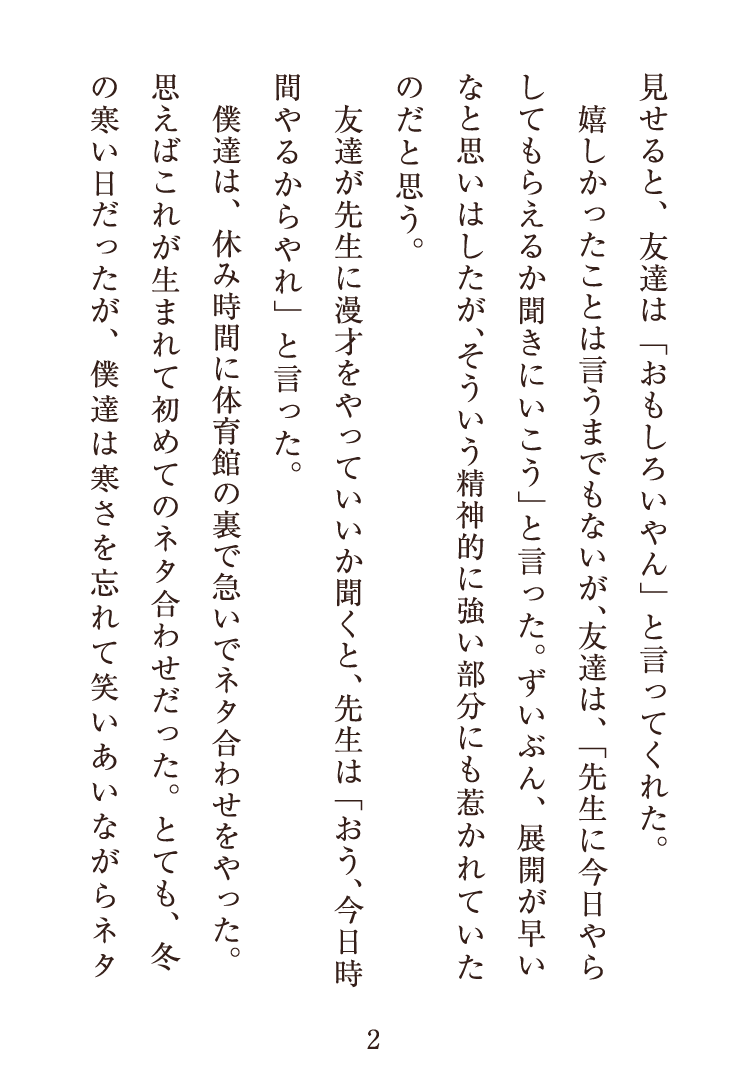 見せると、友達は「おもしろいやん」と言ってくれた。
嬉しかったことは言うまでもないが、友達は、「先生に今日やら
してもらえるか聞きにいこう」と言った。ずいぶん、展開が早い
なと思いはしたが、そういう精神的に強い部分にも惹かれていた
のだと思う。
友達が先生に漫才をやっていいか聞くと、先生は「おう、今日時
間やるからやれ」と言った。
僕達は、休み時間に体育館の裏で急いでネタ合わせをやった。
思えばこれが生まれて初めてのネタ合わせだった。とても、冬
の寒い日だったが、僕達は寒さを忘れて笑いあいながらネタ
2